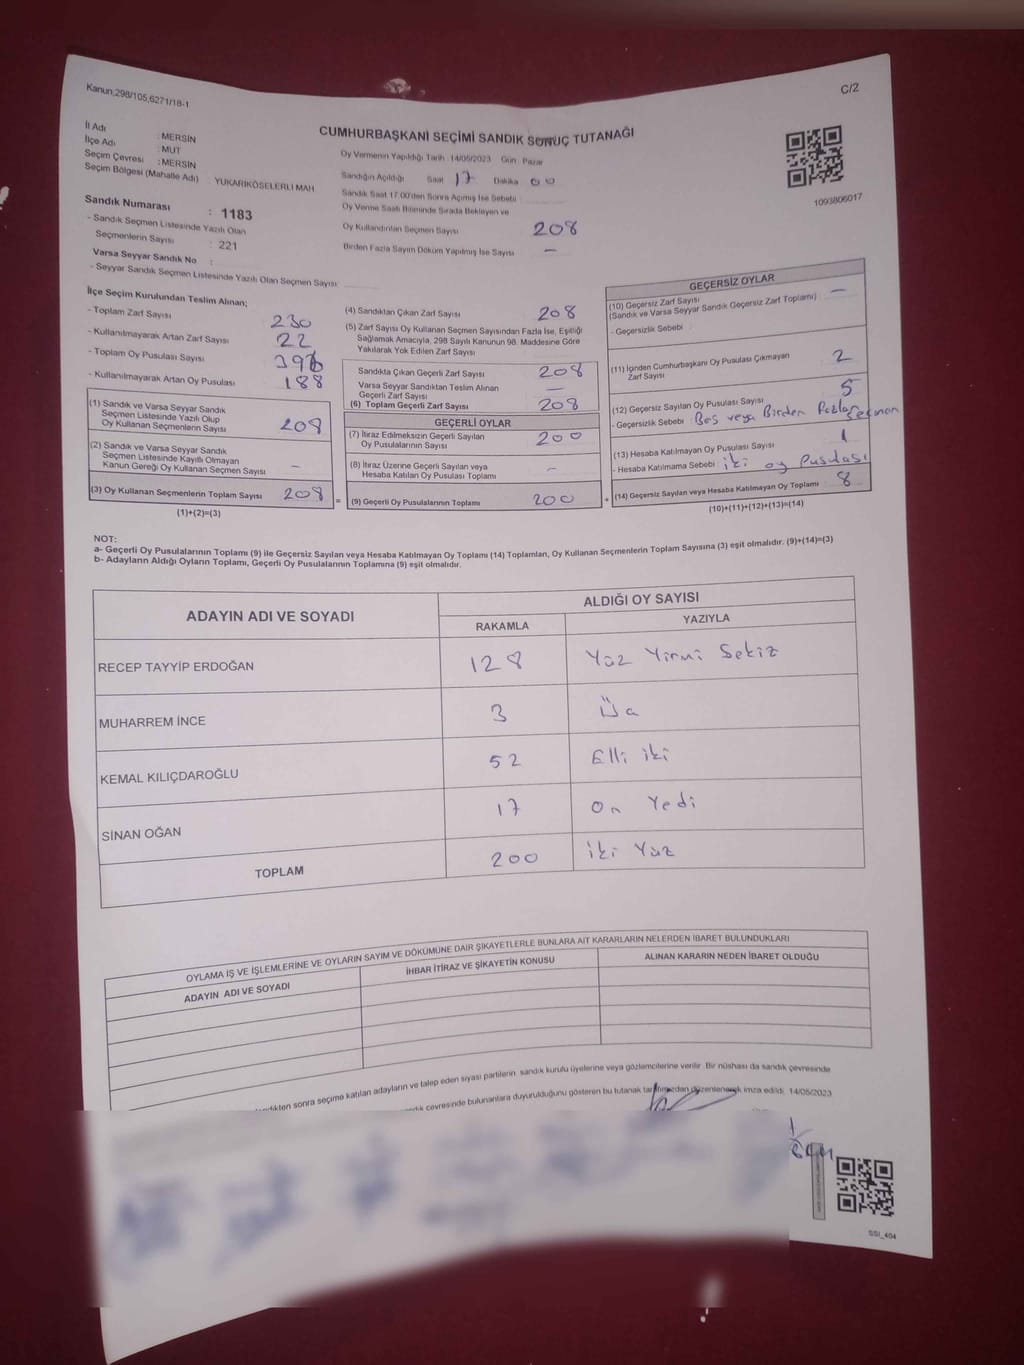 Kanun;298/105,6271/18-1
C/2
CUMHURBAŞKANI SEÇİMİ SANDIK SONUÇ TUTANAĞI
İl Adı : MERSİN
İlçe Adı : MUT
Seçim Çevresi : MERSİN
Seçim Bölgesi (Mahalle Adı) : YUKARIKÖSELERLİ MAH
Oy Vermenin Yapıldığı Tarih :14/05/2023 Gün : Pazar
Sandığın Açıldığı Saat 17 Dakika 00
Sandık Saat 17.00'den Sonra Açımış İse Sebebi
Oy Verme Saati Bitiminde Sırada Bekleyen ve
Oy Kullandırılan Seçmen Sayısı 208
Birden Fazla Sayım Döküm Yapılmış İse Sayısı —
1093806017
Sandık Numarası : 1183
- Sandık Seçmen Listesinde Yazılı Olan
Seçmenlerin Sayısı : 221
Varsa Seyyar Sandık No :
- Seyyar Sandık Seçmen Listesinde Yazılı Olan Seçmen Sayısı
İlçe Seçim Kurulundan Teslim Alınan;
- Toplam Zarf Sayısı 230
- Kullanılmayarak Artan Zarf Sayısı 22
- Toplam Oy Pusulası Sayısı 396
- Kullanılmayarak Artan Oy Pusulası 188
(1) Sandık ve Varsa Seyyar Sandık
Seçmen Listesinde Yazılı Olup
Oy Kullanan Seçmenlerin Sayısı 208
(2) Sandık ve Varsa Seyyar Sandık
Seçmen Listesinde Kayıtlı Olmayan
Kanun Gereği Oy Kullanan Seçmen Sayısı —
(3) Oy Kullanan Seçmenlerin Toplam Sayısı 208 =
(1)+(2)=(3)
(4) Sandıktan Çıkan Zarf Sayısı 208
(5) Zarf Sayısı Oy Kullanan Seçmen Sayısından Fazla İse, Eşitliği
Sağlamak Amacıyla, 298 Sayılı Kanunun 98. Maddesine Göre
Yakılarak Yok Edilen Zarf Sayısı
Sandıkta Çıkan Geçerli Zarf Sayısı 208
Varsa Seyyar Sandıktan Teslim Alınan
Geçerli Zarf Sayısı —
(6) Toplam Geçerli Zarf Sayısı 208
GEÇERLİ OYLAR
(7) İtiraz Edilmeksizin Geçerli Sayılan
Oy Pusulalarının Sayısı 200
(8) İtiraz Üzerine Geçerli Sayılan veya
Hesaba Katılan Oy Pusulası Toplamı —
(9) Geçerli Oy Pusulalarının Toplamı 200 +
GEÇERSİZ OYLAR
(10) Geçersiz Zarf Sayısı
(Sandık ve Varsa Seyyar Sandık Geçersiz Zarf Toplamı) —
- Geçersizlik Sebebi
(11) İçinden Cumhurbaşkanı Oy Pusulası Çıkmayan
Zarf Sayısı 2
(12) Geçersiz Sayılan Oy Pusulası Sayısı 5
- Geçersizlik Sebebi Boş veya Birden Fazla seçmen
(13) Hesaba Katılmayan Oy Pusulası Sayısı 1
- Hesaba Katılmama Sebebi iki oy Pusulası
(14) Geçersiz Sayılan veya Hesaba Katılmayan Oy Toplamı 8
(10)+(11)+(12)+(13)=(14)
NOT:
a- Geçerli Oy Pusulalarının Toplamı (9) ile Geçersiz Sayılan veya Hesaba Katılmayan Oy Toplamı (14) Toplamları, Oy Kullanan Seçmenlerin Toplam Sayısına (3) eşit olmalıdır. (9)+(14)=(3)
b- Adayların Aldığı Oyların Toplamı, Geçerli Oy Pusulalarının Toplamına (9) eşit olmalıdır.
ADAYIN ADI VE SOYADI
ALDIĞI OY SAYISI
RAKAMLA YAZIYLA
RECEP TAYYİP ERDOĞAN 128 Yüz Yirmi Sekiz
MUHARREM İNCE 3 Üç
KEMAL KILIÇDAROĞLU 52 Elli iki
SİNAN OĞAN 17 On Yedi
TOPLAM 200 iki Yüz
OYLAMA İŞ VE İŞLEMLERİNE VE OYLARIN SAYIM VE DÖKÜMÜNE DAİR ŞİKAYETLERLE BUNLARA AİT KARARLARIN NELERDEN İBARET BULUNDUKLARI
ADAYIN ADI VE SOYADI İHBAR İTİRAZ VE ŞİKAYETİN KONUSU ALINAN KARARIN NEDEN İBARET OLDUĞU
sonra seçime katılan adayların ve talep eden siyasi partilerin sandık kurulu üyelerine veya gözlemcilerine verilir. Bir nüshası da sandık çevresinde
çevresinde bulunanlara duyurulduğunu gösteren bu tutanak tarafımızdan düzenlenerek imza edildi. 14/05/2023
SSI_404